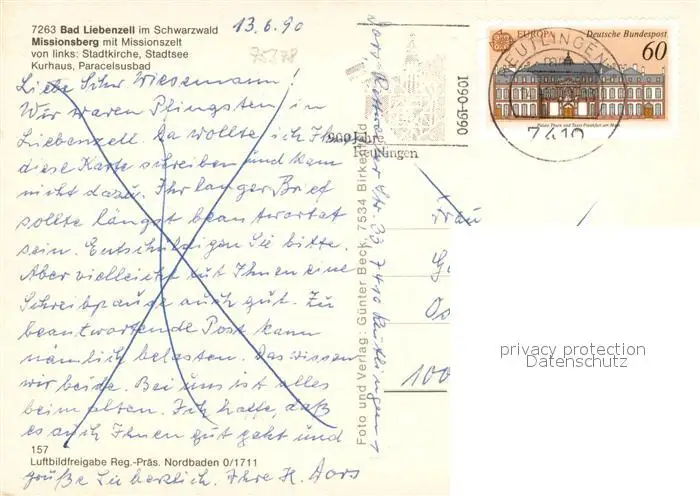 7263 Bad Liebenzell im Schwarzwald
Missionsberg mit Missionszelt
von links: Stadtkirche, Stadtsee
Kurhaus, Paracelsusbad
13.6.90
75378
Liebe Schw Wiesemann!
Wir waren Pfingsten in
Liebenzell. Da wollte ich Ihnen
diese Karte schreiben und kam
nicht dazu. Ihr langer Brief
sollte längst beantwortet
sein. Entschuldigen Sie bitte.
Aber vielleicht tut Ihnen eine
Schreibpause auch gut. Zu
beantwortende Post kann
nämlich belasten. Das wissen
wir beide. Bei uns ist alles
beim alten. Ich hoffe, daß
es auch Ihnen gut geht und
157
Luftbildfreigabe Reg.-Präs. Nordbaden 0/1711
grüße Sie herzlich. Ihre H.
Str. 33 7410 Reutlingen 1
Foto und Verlag: Günter Beck, 7534 Birkenfeld
900 Jahre
Reutlingen
1090-1990
REUTLINGEN
7410
EUROPA
Deutsche Bundespost
60
Palais Thurn und Taxis Frankfurt am Main
Frau
100
privacy protection
Datenschutz